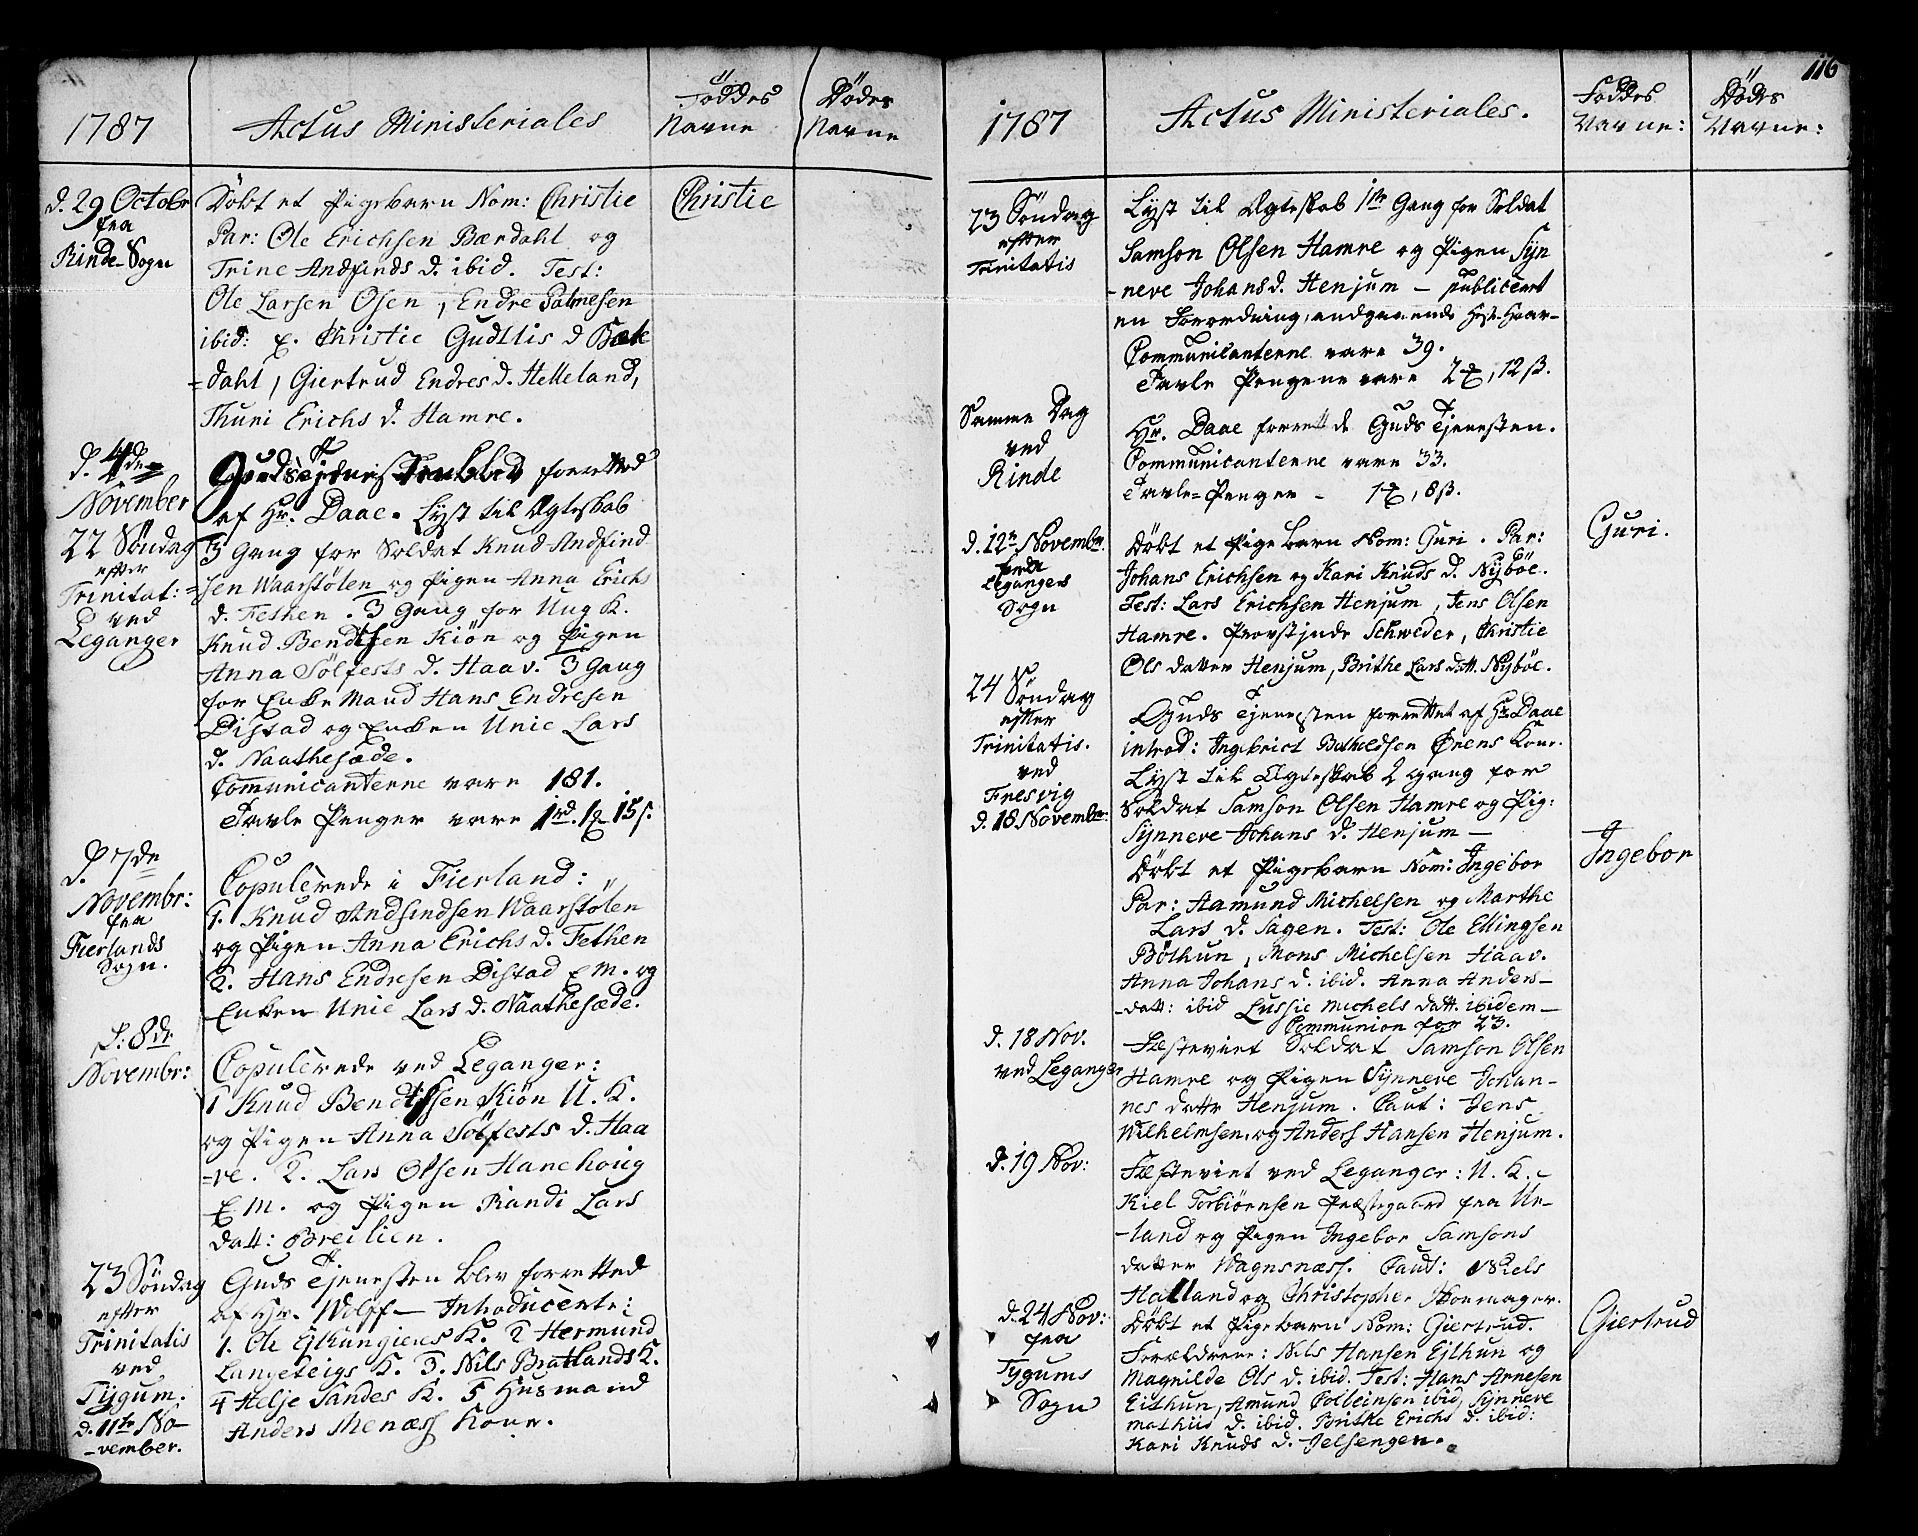 1787
Actus Ministeriales
Föddes
Navne
Dödes
Navne
d. 29 Octobr
fra
Rinde-Sogn
Döbt et Pigebarn Nom: Christie
Christie
Par: Ole Erichsen Bærdahl og
Trine Andfinds d. ibid. Test:
Ole Larsen Osen, Endre Palmesen
ibid: Christie Gudllis d
-dahl, Giertrud Endres d. Helleland,
Thuri Erichs d. Hamre.
d. 4de
November
22 Söndag
efter
Trinitat:
ved
Leganger
forretted
af Hr. Daae. Lyst til Ægteskab
3 Gang for Soldat Knud Andfind
-sen Waarstölen og Pigen Anna Erichs
d. Fethen. 3 Gang for Ung K.
Knud Bendtsen Kiön og Pigen
Anna Sölfests d. Haav. 3 Gang
for Enke Mand Hans Endresen
Distad og Enken Unie Lars
d. Naathesæde.
Comunicanterne vare 181.
Tavle Penger vare 1rd. 15s.
d. 7de
Novembr:
fra
Fierlands
Sogn.
Copulerede i Fierland:
1. Knud Andfindsen Waarstölen
og Pigen Anna Erichs d. Fethen
2. Hans Endresen Distad E M. og
Enken Unie Lars d. Naathesæde.
d: 8de
Novembr:
Copulerede ved Leganger:
1 Knud Bendtssen Kiön U. K.
og Pigen Anna Sölfests d. Haa
-ve. 2. Lars Olsen Hanehoug
E M. og Pigen Randi Lars
datt: Breilien.
23 Söndag
efter
Trinitatis
ved
Tygum.
d. 11te No-
-vember.
Guds Tjenesten blev forretted
af Hr. Wolff — Introducerte:
1. Ole K. 2 Hermund
Langeteigs K. 3. Nils Bratlands K.
4 Helje Sandes K. 5 Husmand
Anders Menæss Kone.
116
1787
Actus Ministeriales.
Föddes
Navne:
Dödes
Navne:
23 Söndag
efter
Trinitatis
Lyst til Ægteskab 1te Gang for Soldat
Samson Olsen Hamre og Pigen Syn
-neve Johans d. Henjum — publicert
en Forordning, andgaaende Heste Haar-
Communicanterne vare 39.
Tavle Pengene vare 2, 12 ß.
Samme Dag
ved
Rinde
Hr. Daae forrettede Guds Tjenesten.
Communicanterne vare 33.
Tavle-Penger - 1, 8 ß.
d. 12te Novembr.
fra
Legangers
Sogn
Döbt et Pigebarn Nom: Guri. Par:
Guri.
Johans Erichsen og Kari Knuds d. Nyböe.
Test: Lars Erichsen Henjum, Jens Olsen
Hamre. Provstinde Schweder, Christie
Ols datter Henjum, Brithe Lars datt. Nyböe.
24 Söndag
efter
Trinitatis.
ved
Fresvig
d. 18 Novembr:
Guds Tjenesten forrettet af Hr Daae
introd: Ingebrict Botholdsen Örens Kone.
Lyst til Ægteskab 2 gang for
Soldat Samson Olsen Hamre og Pig:
Synneve Johans d. Henjum —
Döbt et Pigebarn Nom: Ingebor
Ingebor
Par: Aamund Michelsen og Marthe
Lars d. Sagen. Test: Ole Ellingsen
Böthun, Mons Michelsen Haav.
Anna Johans d. ibid. Anna Anders-
-datt: ibid Lussie Michels datt. ibidem —
Communion for 23.
d. 18 Nov.
ved Leganger
Fæstevint Soldat Samson Olsen
Hamre og Pigen Synneve Johan-
nes dattr Henjum. Caut: Jens
Wilhelmsen, og Anders Hansen Henjum.
d. 19 Nov:
Fæstevint ved Leganger: U. K. -
Kiel Torbiörnsen Præstegaard fra Ur-
-land og Pigen Ingebor Samsons
datter Wagnsnæss. Caut: Niels
Halland og Christopher Skoemager.
d. 24 Nov:
fra
Tygums
Sogn
Döbt et Pigebarn Nom: Giertrud.
Giertrud
Forældrene: Nils Hansen Ejthun og
Magnilde Ols d. ibid. Test: Hans Arnesen
Eithun, Amund Colbeinsen ibid, Synneve
Mathiis d. ibid. Brithe Erichs d. ibid:
Kari Knuds d. Jelsengen.